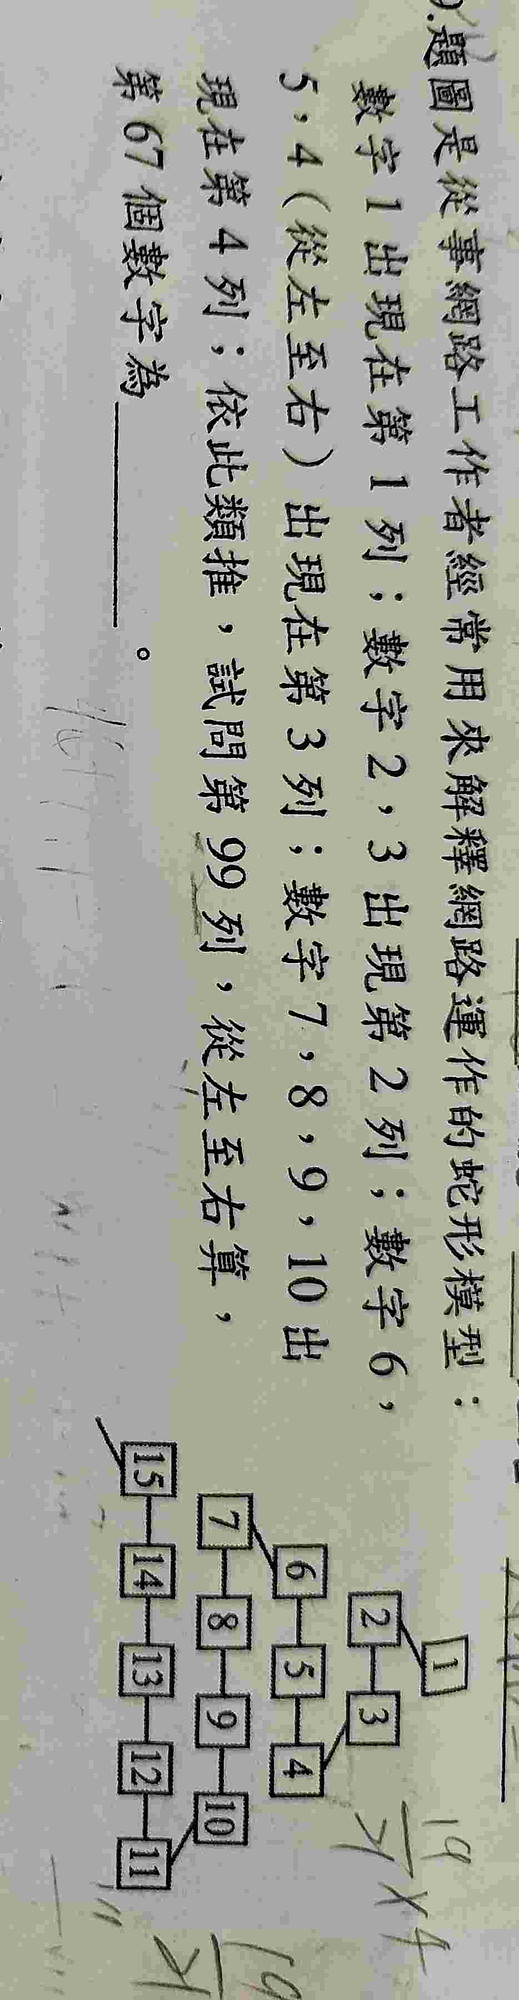 9.題圖是從事網路工作者經常用來解釋網路運作的蛇形模型：
數字1出現在第1列；數字2，3出現第2列；數字6，
5，4（從左至右）出現在第3列；數字7，8，9，10出
現在第4列；依此類推，試問第99列，從左至右算，
第67個數字為________。
1
2 3
6 5 4
7 8 9 10
15 14 13 12 11